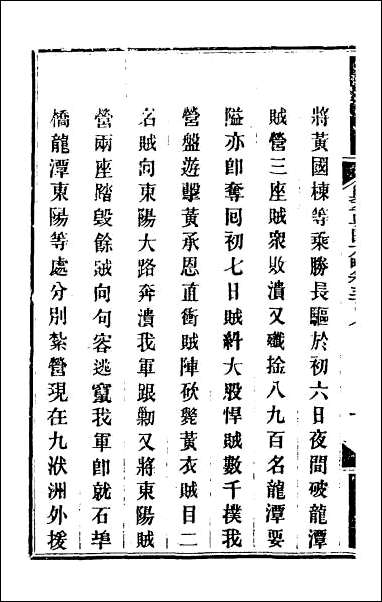 將黃國棟等乘勝長驅於初六日夜間破龍潭
賊營三座賊眾敗潰又殲捡八九百名龍潭要
隘亦卽奪囘初七日賊糾大股悍賊數千撲我
營盤遊擊黃承恩直衝賊陣砍斃黃衣賊目二
名賊向東陽大路奔潰我軍跟勦又將東陽賊
營兩座踏毀餘賊向句容逃竄我軍卽就石埠
橋龍潭東陽等處分別紮營現在九洑洲外援